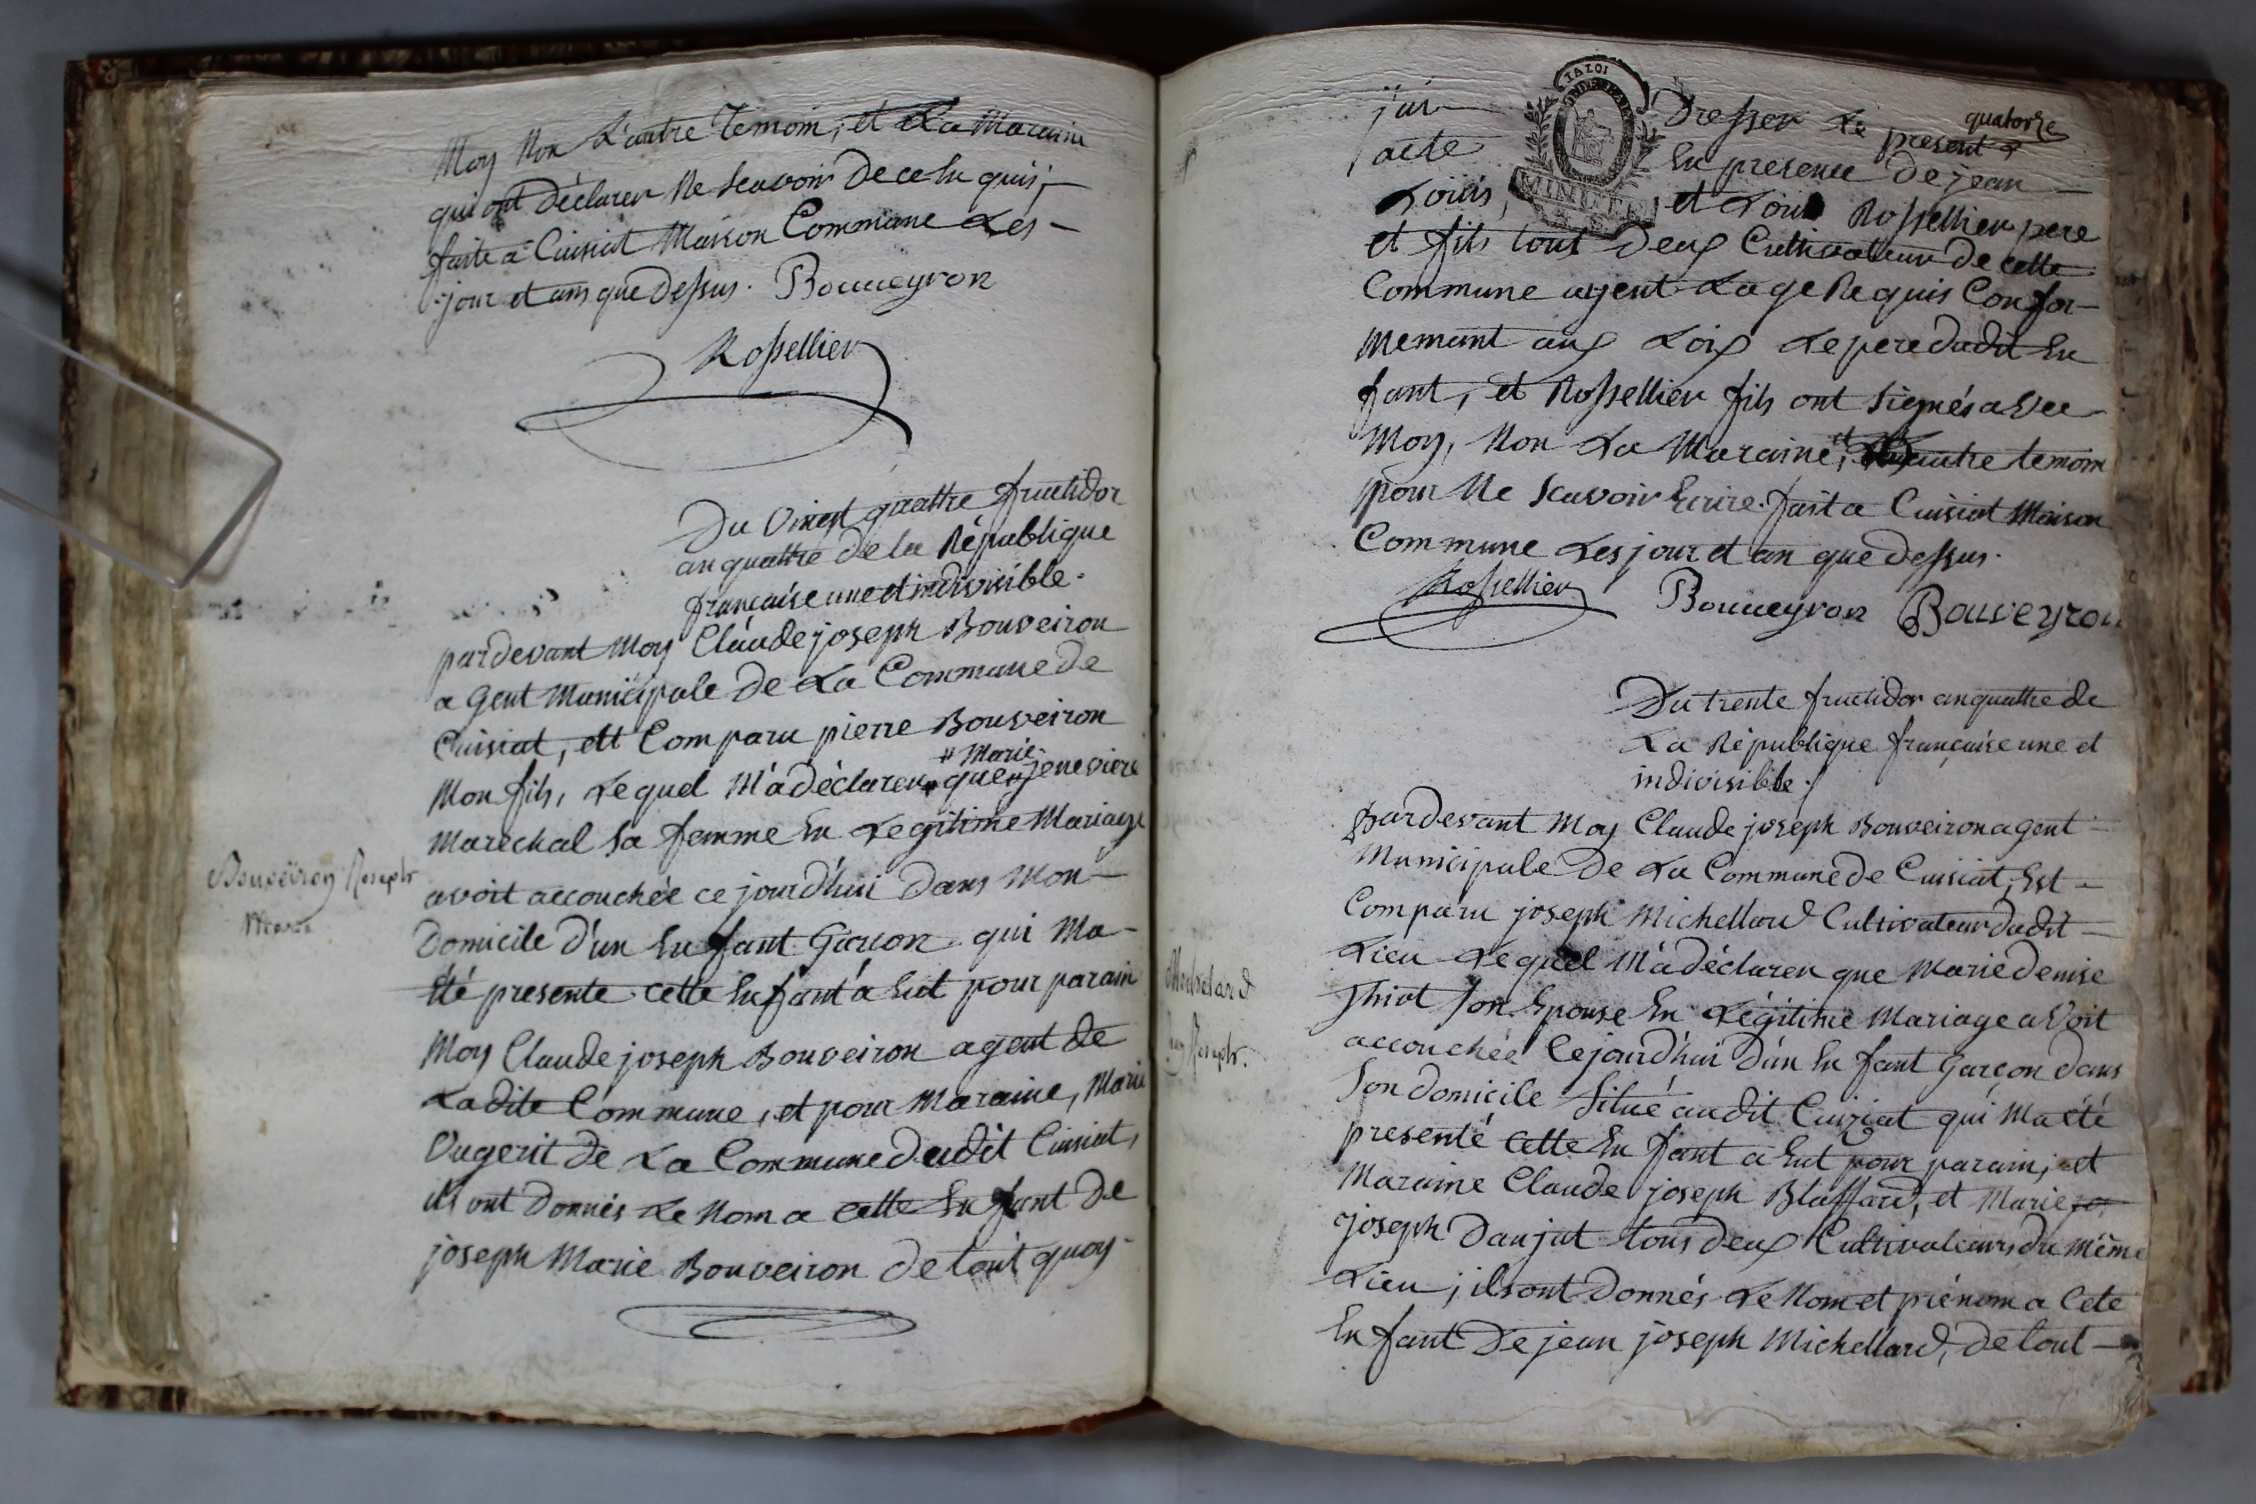 Moy Non L'autre Temoin, et La Maraine
qui ont déclarer Ne Scavoir de ce En quis,
faite a Cuisiat Maison Commune Les
jour et ans que Dessus. Bouueyron
Rossellier
Du Vingt quattre fructidor
an quattre de la République
française une et indivisible.
pardevant Moy Claude joseph Bouveiron
agent Municipale De La Commune de
Cuisiat, ett Comparu pierre Bouveiron
# Marie
Mon fils, Lequel M'a déclarer que # jeneviere
Maréchal Sa femme En Legitime Mariage
Bouveiron Joseph
Marie
avoit accouchée ce jourd'hui Dans Mon
Domicile D'un Enfant Garcon qui Ma
Eté presente cette Enfant a Eut pour parain
Moy Claude joseph Bouveiron agent de
Ladite Commune, et pour Maraine, Marie
Vugerit de La Commune dudit Cuisiat,
ils ont Donnés Le Nom a cette Enfant de
joseph Marie Bouveiron de tout quoy
LA LOI
j'ai Dresser Le present
quatorze
acte En presence De jean
Louis, et Louis Rossellier pere
et fils tout Deux Cultivateur de cette
Commune ayent L'age Requis Confor-
mement aux Loix Le pere dudit En
fant, et Rossellier fils ont Signés avec
Moy, Non La Maraine, et L'autre temoin
pour Ne Scavoir Ecrire. fait a Cuisiat Maison
Commune Les jour et an que dessus.
Rossellier Bouueyron Bouveyron
Du trente fructidor an quattre de
La République française une et
indivisible.
Pardevant Moy Claude joseph Bouveiron agent
Municipale De La Commune de Cuisiat, Est
Comparu joseph Michellard Cultivateur dudit
Lieu Lequel M'a déclarer que Marie denise
Michelard
Jean Joseph.
Thiot Son Epouse En Légitime Mariage a Voit
accouchée Cejourd'hui D'un En fant Garçon dans
Son domicile Situé audit Cuiziat qui Ma été
presenté cette En fant a Eut pour parain, et
Maraine Claude joseph Blaffard, et Marie jo
joseph Daujat tous deux Cultivateurs du Même
Lieu, ils ont Donnés Le Nom et prénom a Cete
En fant De jean joseph Michellard, de tout